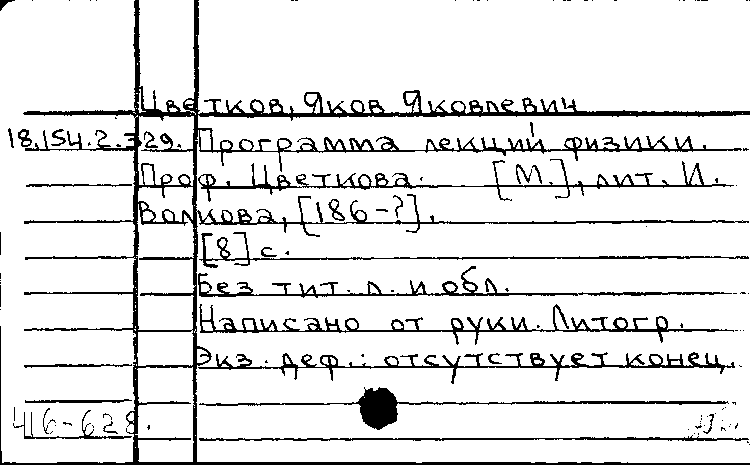 Цветков, Яков Яковлевич
18.154.2.329. Программа лекций физики.
Проф. Цветкова. [М.], лит. И.
Волкова, [186-?].
[8] с.
Без тит. л. и обл.
Написано от руки. Литогр.
Экз. деф.: отсутствует конец.
416-628.